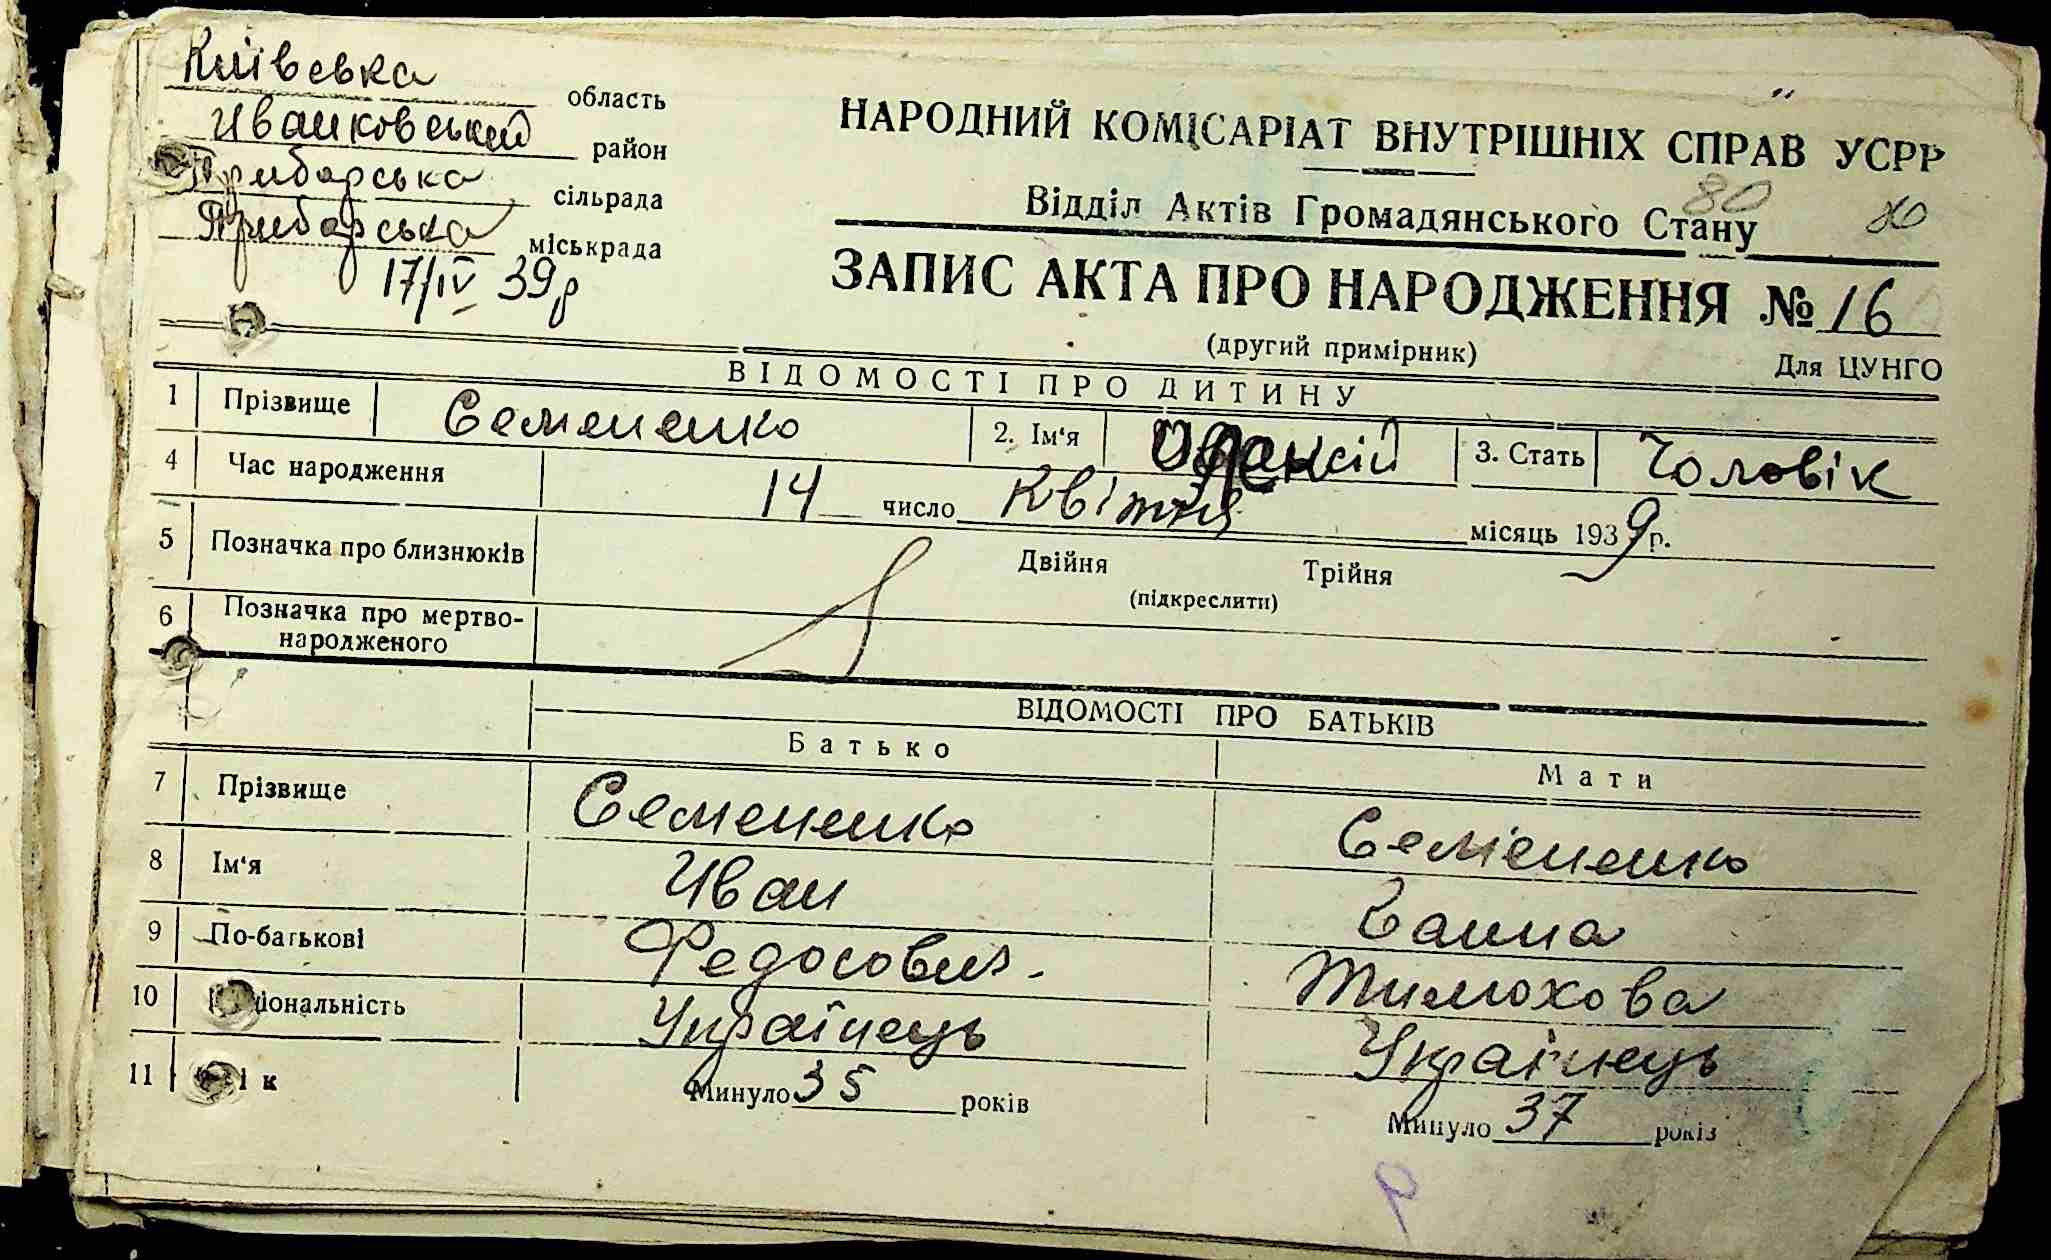 Київська область
Иванковський район
Прибарська сільрада
Прибарська міськрада
17/IV 39 р
НАРОДНИЙ КОМІСАРІАТ ВНУТРІШНІХ СПРАВ УСРР
Відділ Актів Громадянського Стану
80 80
ЗАПИС АКТА ПРО НАРОДЖЕННЯ № 16
(другий примірник) Для ЦУНГО
ВІДОМОСТІ ПРО ДИТИНУ
1 Прізвище Семененко 2. Ім'я 3. Стать Чоловік
4 Час народження 14 число Квітня місяць 1939 р.
5 Позначка про близнюків Двійня Трійня
(підкреслити)
6 Позначка про мертво-
народженого
ВІДОМОСТІ ПРО БАТЬКІВ
Батько Мати
7 Прізвище Семененко Семененко
8 Ім'я Иван Ганна
9 По-батькові Федосович Тимохова
10 Національність Українець Українець
11 Вік Минуло 35 років Минуло 37 років